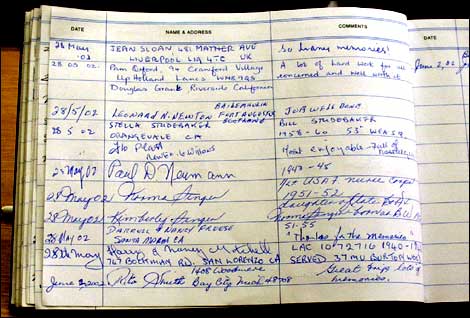 DATE NAME & ADDRESS COMMENTS DATE
28 May 02 JEAN SLOAN 481 MATHER AVE So many memories!
LIVERPOOL L19 4TE UK
28 05 02. Pam Oxford, 94 Cranford Village A lot of hard work for all
Up Holland Lancs concerned and well worth it. June 2, 02
Douglas Grant Riverside California
28/5/02 LEONARD N. NEWTON FORT AUGUSTUS JOB WELL DONE
STELLA STUDEBAKER BILL STUDEBAKER
28 5 02 ORANGEVALE CA 1958-60 53rd
Most enjoyable - Full of
28 May 02 Paul D Neumann 1947-48
USAF nurse Corps
28 May 02 Norma 1951-52
daughter of
28 May 02 Kimberly
51-55
DARRELL & NANCY FREESE
28 May 02 SANTA MARIA CA "Thanks for the memories"
28th May Harry & Nancy Mitchell LAC 1940-
767 BOCKMAN RD. SAN LORENZO CA SERVED 37 MU BURTONWOOD
1608 Woodmere Great trip lots of
June 2, 2002 Rita Smith Bay City Mich 48708 memories.